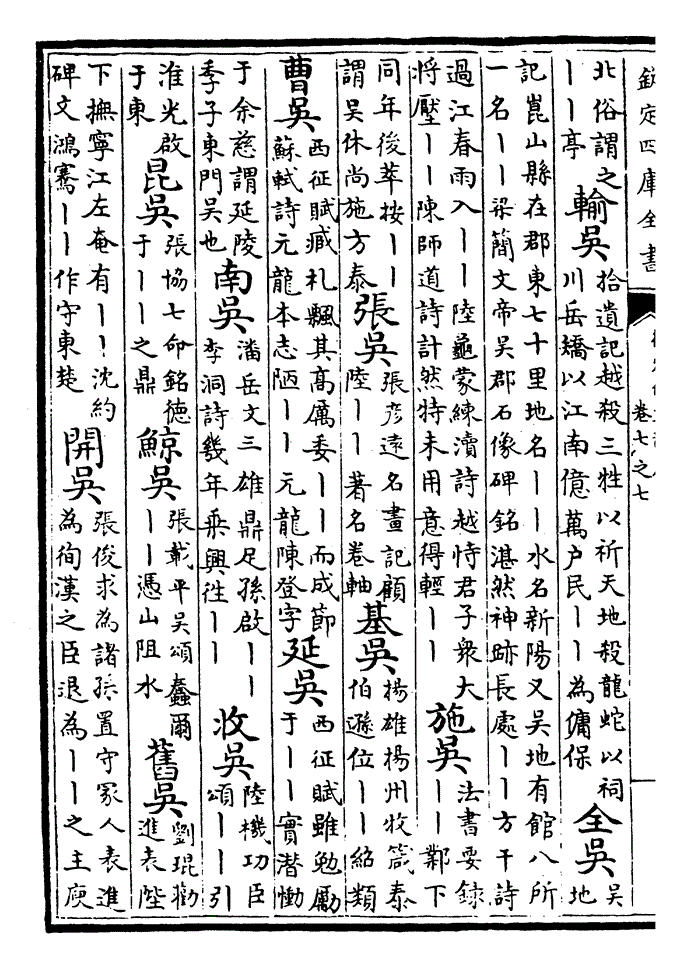 欽定四庫全書
卷七之七
北俗謂之｜｜亭 輸吳 拾遺記越殺三牲以祈天地殺龍蛇以祠川岳矯以江南億萬户民｜｜為傭保 全吳 吳地
記崑山縣在郡東七十里地名｜｜水名新陽又吳地有館八所一名｜｜梁簡文帝吳郡石像碑銘湛然神跡長處｜｜方干詩
過江春雨入｜｜陸龜蒙練瀆詩越恃君子衆大將壓｜｜陳師道詩計然特未用意得輕｜｜ 施吳 法書要錄｜｜鄴下
同年後萃按｜｜謂吳休尚施方泰 張吳 張彦遠名畫記顧陸｜｜著名卷軸 基吳 楊雄揚州牧箴泰伯遜位｜｜紹類
曹吳 西征賦臧札飄其高厲委｜｜而成節蘇軾詩元龍本志陋｜｜元龍陳登字 延吳 西征賦雖勉勵于｜｜實潜慟
于余慈謂延陵季子東門吳也 南吳 潘岳文三雄鼎足孫啟｜｜李洞詩幾年乘興往｜｜ 收吳 陸機功臣頌｜｜引
淮光啟于東 昆吳 張協七命銘德于｜｜之鼎 鯨吳 張載平吳頌蠢爾｜｜憑山阻水 舊吳 劉琨勸進表陛
下撫寧江左奄有｜｜沈約碑文鴻騫｜｜作守東楚 開吳 張俊求為諸孫置守冢人表進為徇漢之臣退為｜｜之主庾